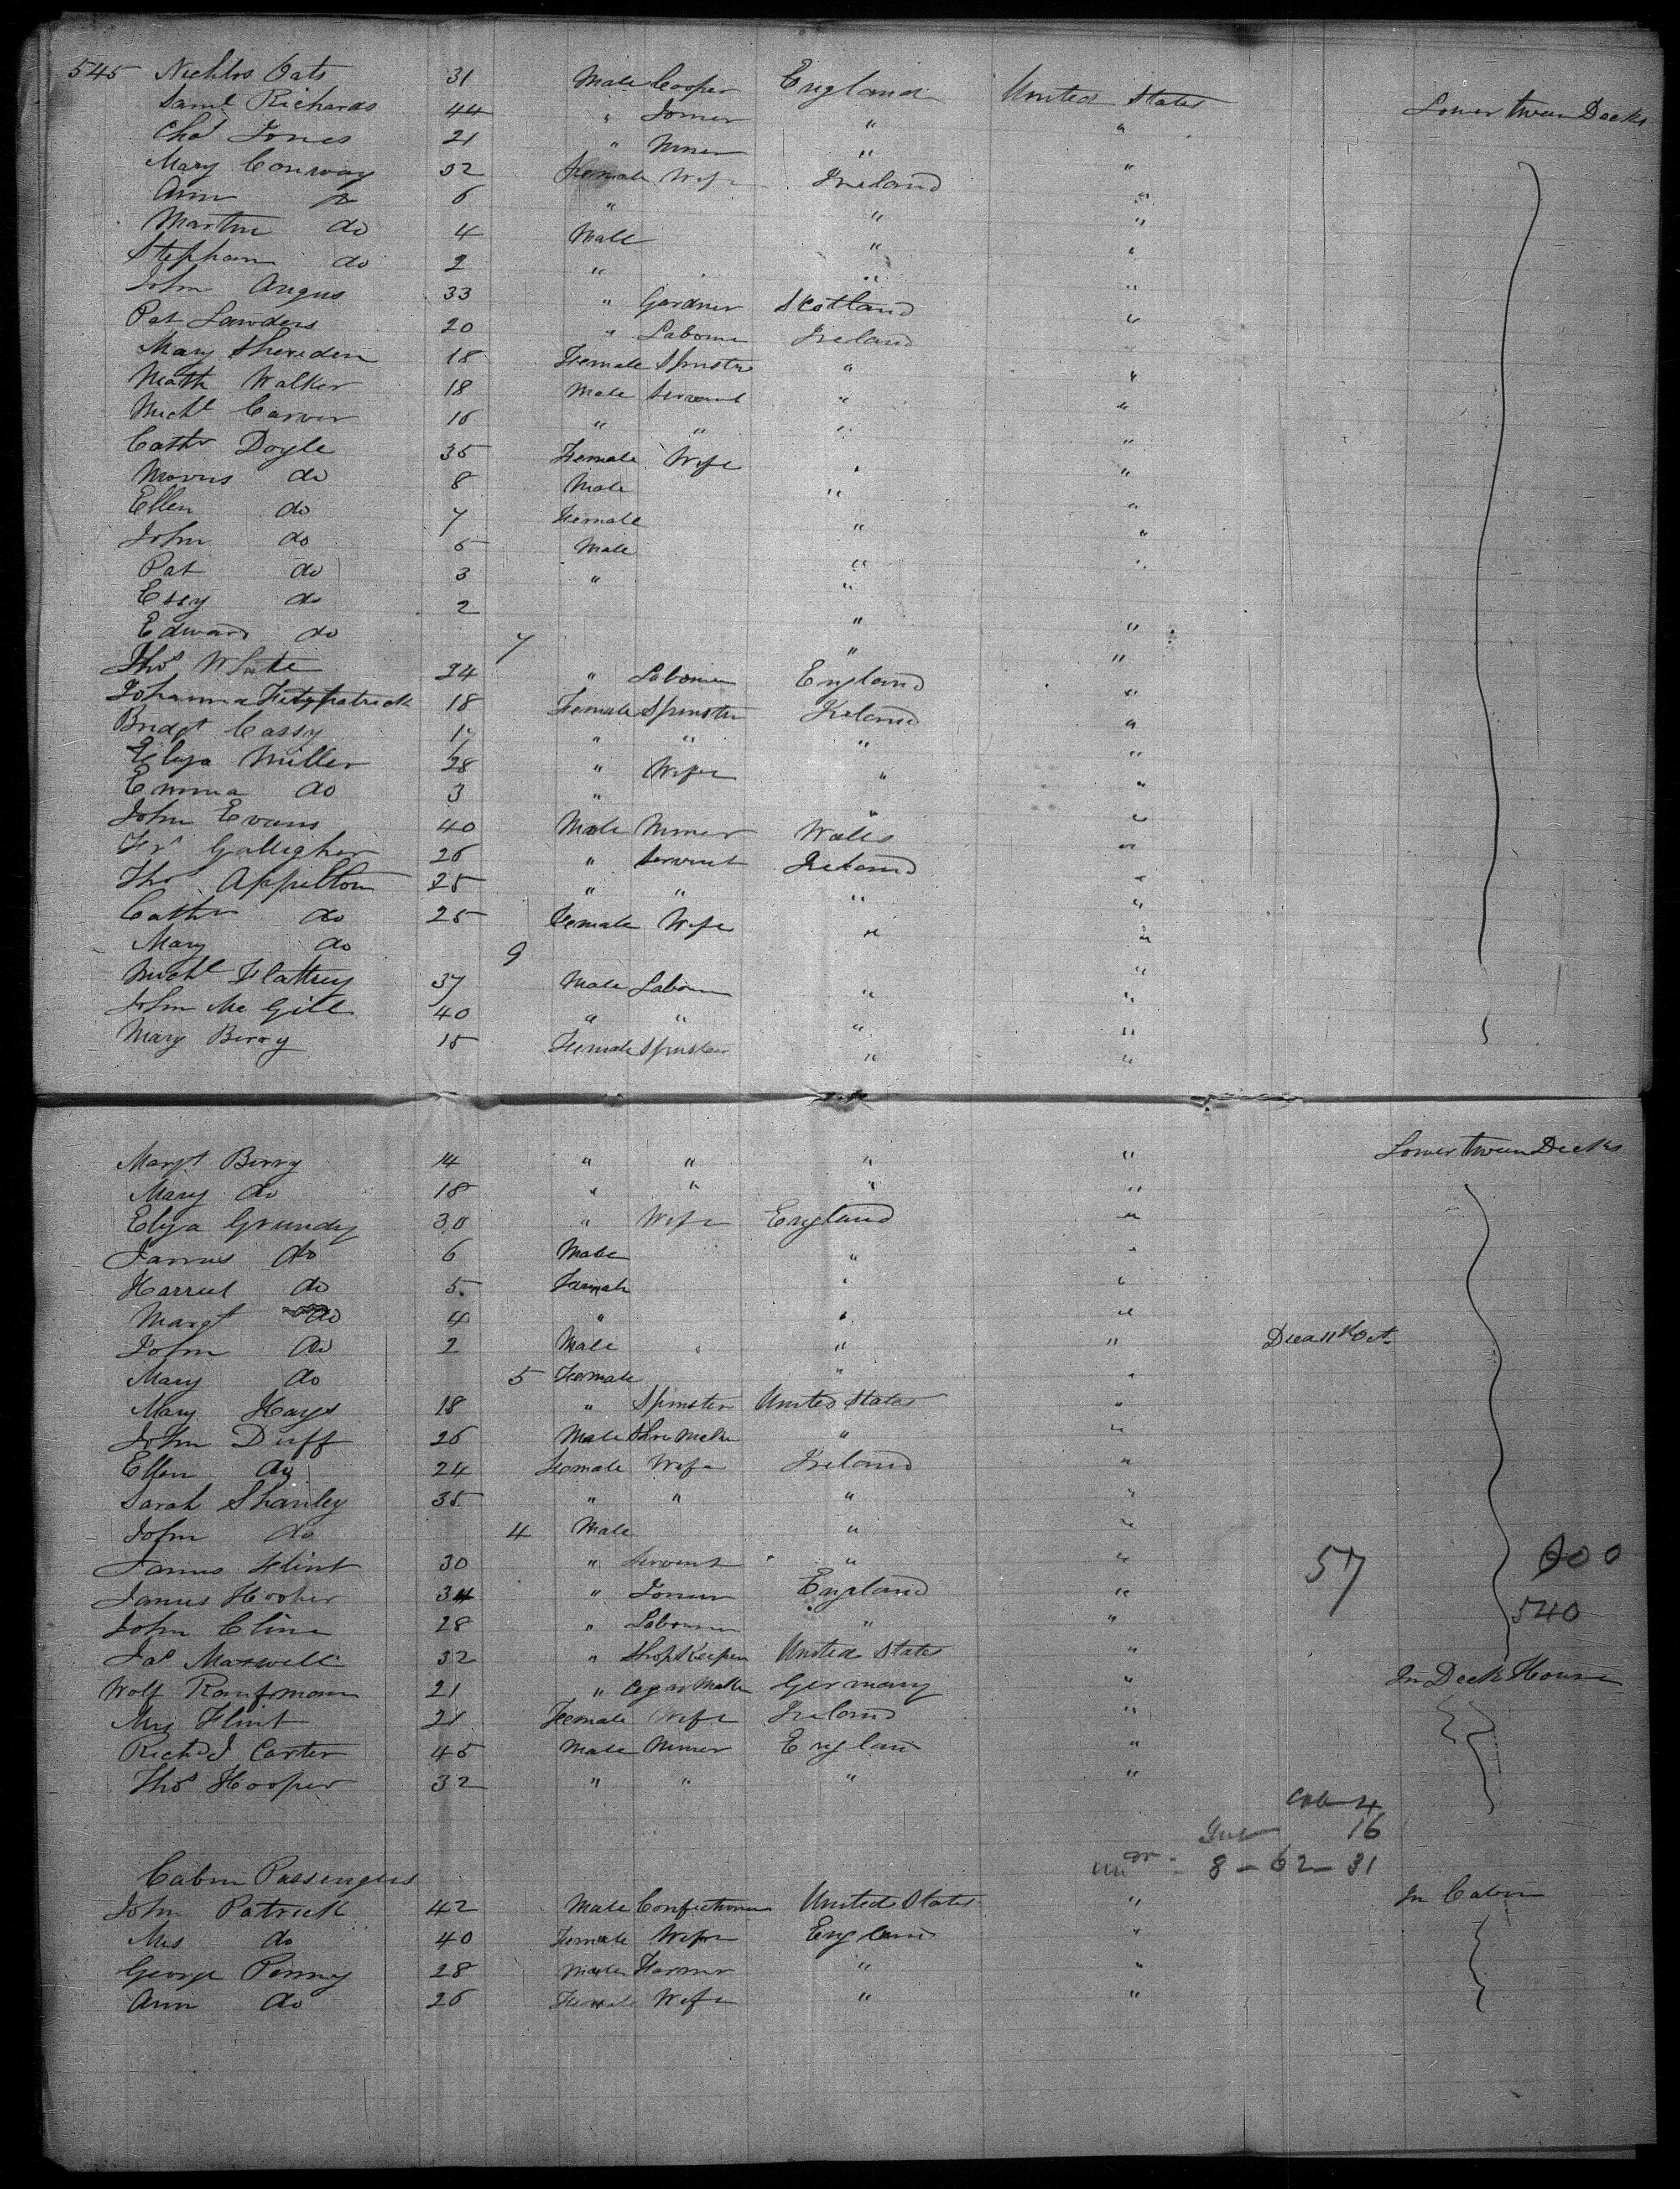 545 Nichlos Oats 31 Male Cooper England United States Lower tween Decks
Saml Richards 44 " Joiner " "
Chas Jones 21 " Miner " "
Mary Conway 32 Female Wife Ireland "
Ann do 6 " " "
Martin do 4 Male " "
Stephen do 2 " " "
John Angus 33 " Gardner Scotland "
Pat Lawders 20 " Labourer Ireland "
Mary Sheriden 18 Female Spinster " "
Math Walker 18 Male Servant " "
Michl Carver 16 " " " "
Cathr Doyle 35 Female Wife " "
Morris do 8 Male " "
Ellen do 7 Female " "
John do 5 Male " "
Pat do 3 " " "
Essy do 2 "
Edward do 7 " "
Thos White 24 " Labourer England "
Johanna Fitzpatrick 18 Female Spinster Ireland "
Bridgt Cassy 17 " " " "
Eliza Miller 28 " Wife " "
Emma do 3 " " "
John Evans 40 Male Miner Wales "
Frs Galligher 26 " Servant Ireland "
Thos Appelton 25 " " " "
Cathr do 25 Female Wife " "
Mary do 9 "
Michl Flattrey 37 Male Labourer " "
John Mc Gill 40 " " " "
Mary Berry 15 Female Spinster " "
Margt Berry 14 " " " " Lower tween Decks
Mary do 18 " " " "
Eliza Grundy 30 " Wife England "
James do 6 Male " "
Harriet do 5 Female " "
Margt do 4 " " "
John do 2 Male " " Died 11th Oct.
Mary do 5 Female " "
Mary Hays 18 " Spinster United States "
John Duff 26 Male Shoe Maker " "
Ellen do 24 Female Wife Ireland "
Sarah Shanley 35 " " " "
John do 4 Male " "
James Flint 30 " Servant " " 57 600
James Hooper 34 " Joiner England " 540
John Cline 28 " Labourer " "
Jas Maxwell 32 " Shop Keeper United States "
Wolf 21 " Cigar Maker Germany " In Deck House
Mrs Flint 21 Female Wife Ireland "
Richd J Carter 45 Male Miner England "
Thos Hooper 32 " " " "
Cab 4
16
8 - 62 - 31
Cabin Passengers
John Patrick 42 Male Confectioner United States " In Cabin
Mrs do 40 Female Wife England "
George Penny 28 Male Farmer " "
Ann do 26 Female Wife " "